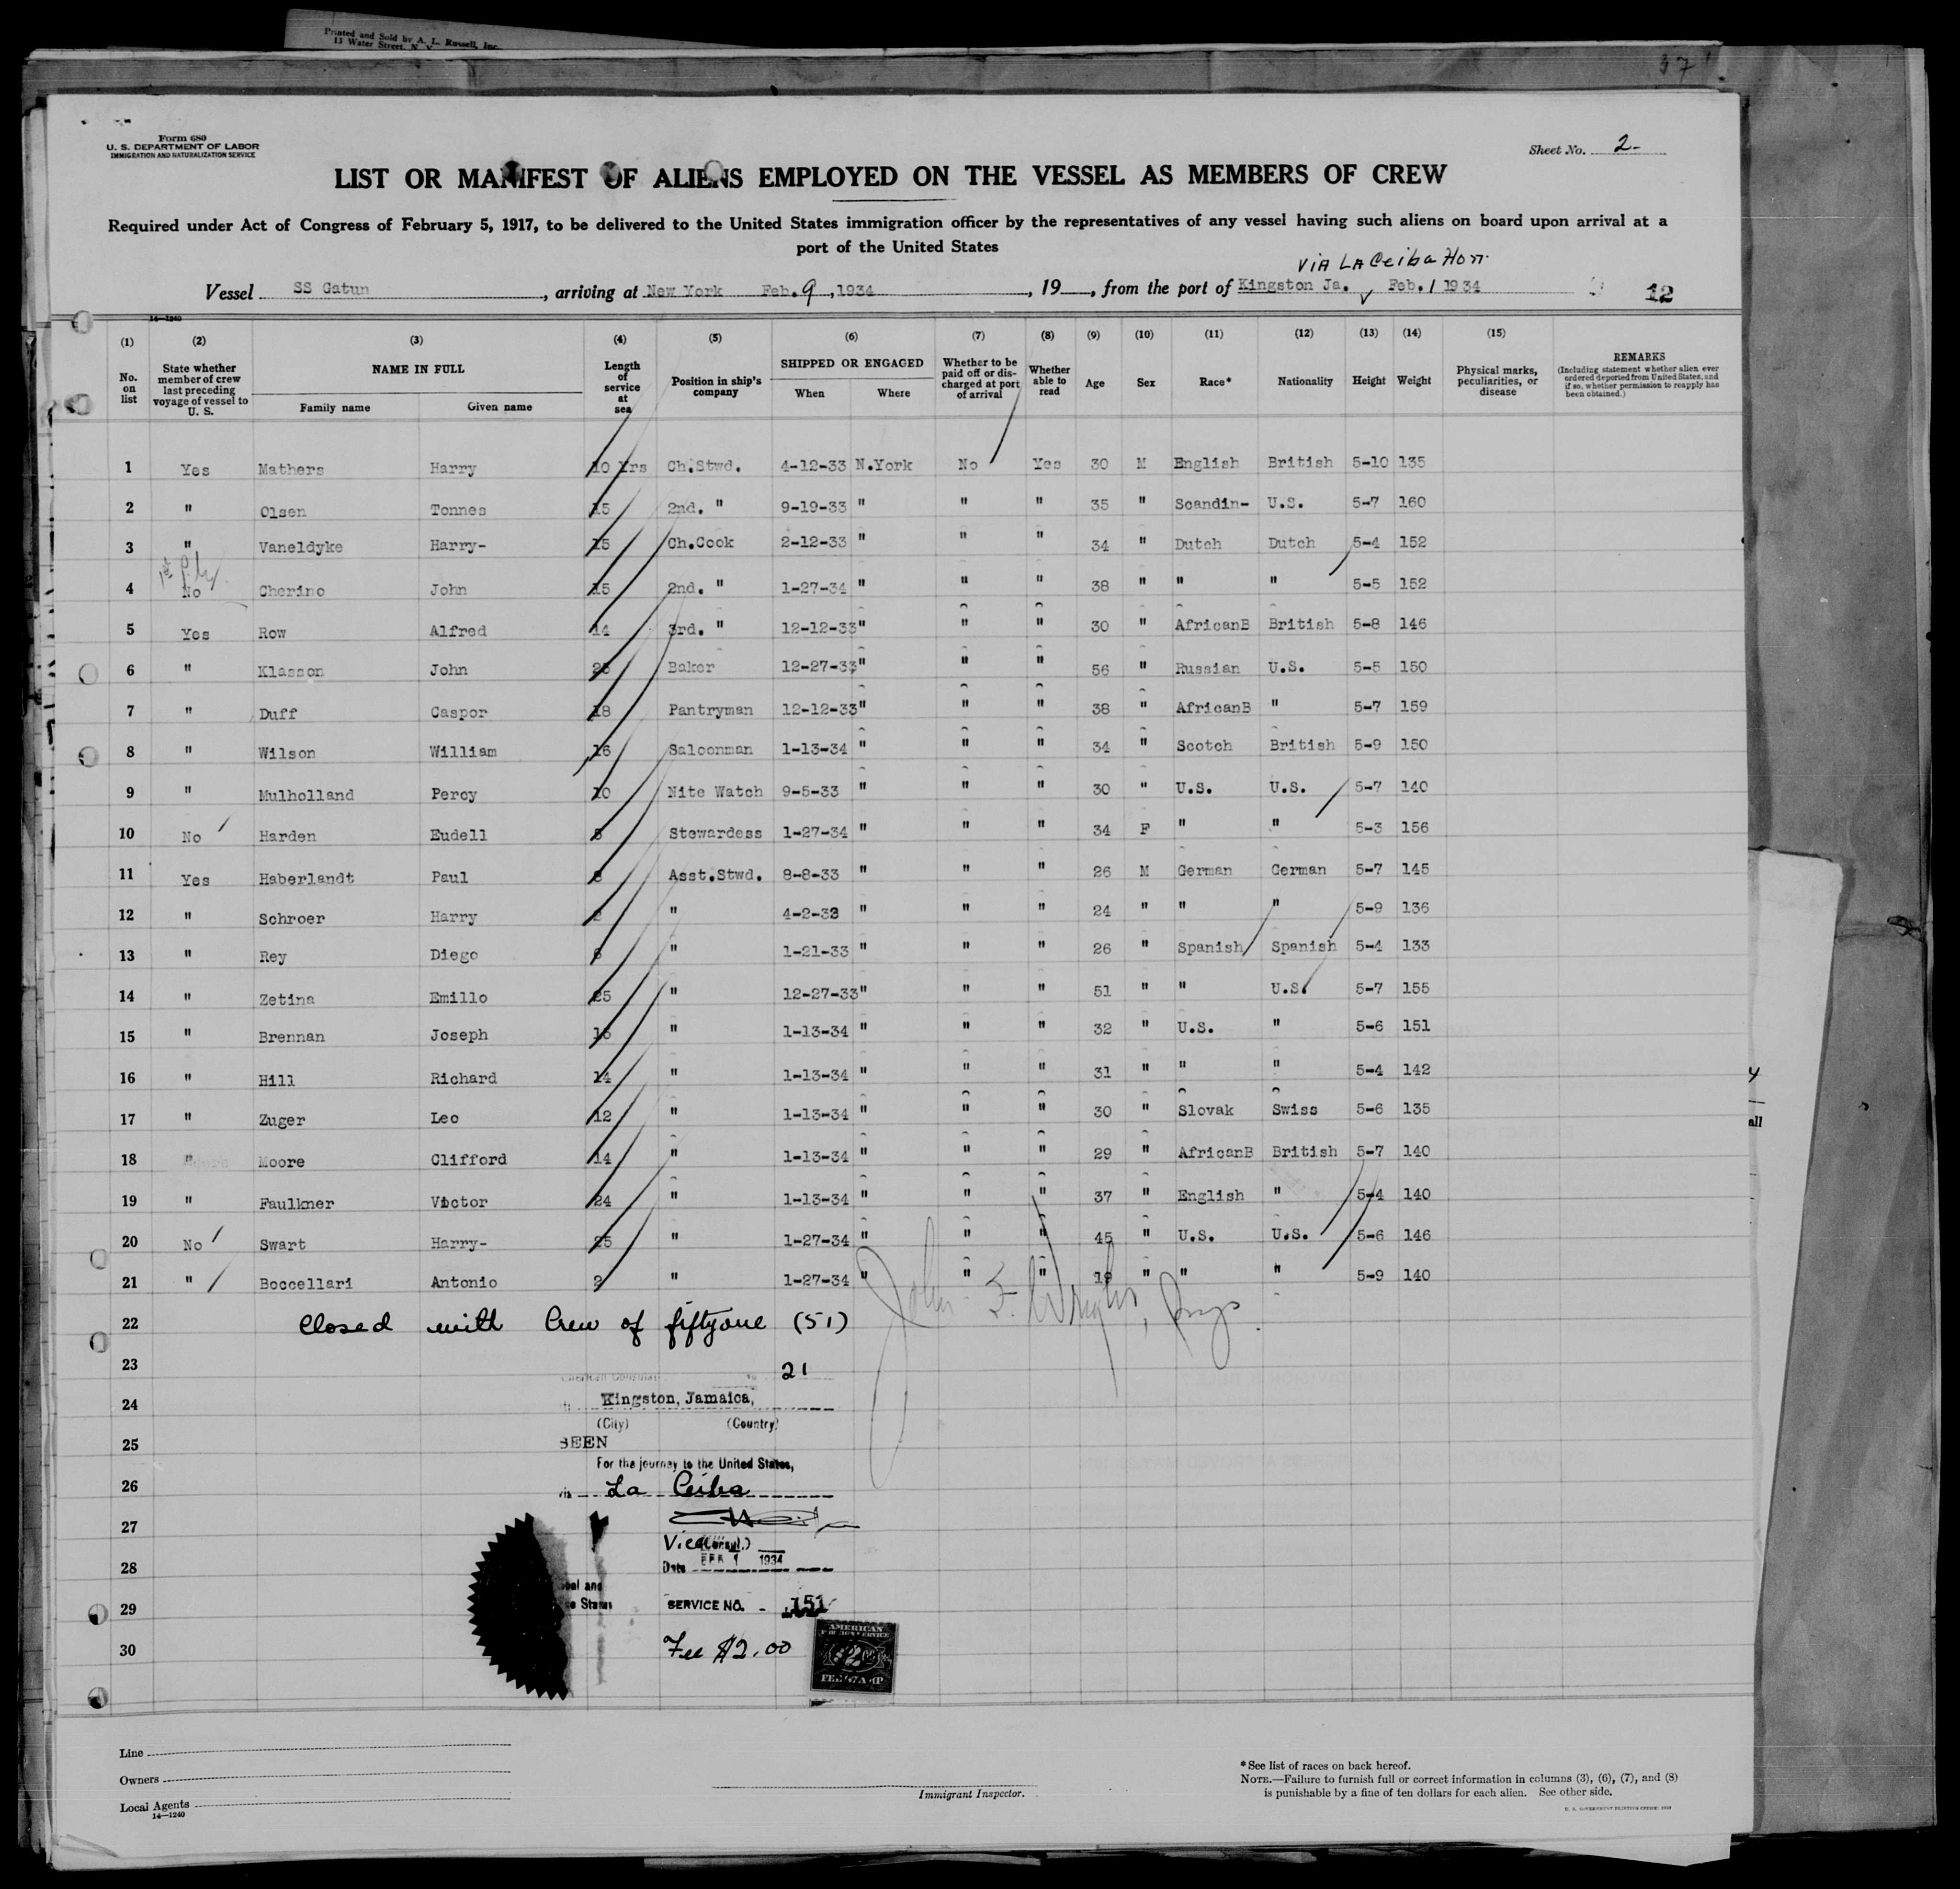 Printed and Sold by A. L. Russell, Inc.
13 Water Street, N. Y.
37
Form 680
U. S. DEPARTMENT OF LABOR
IMMIGRATION AND NATURALIZATION SERVICE
Sheet No. 2-
LIST OR MANIFEST OF ALIENS EMPLOYED ON THE VESSEL AS MEMBERS OF CREW
Required under Act of Congress of February 5, 1917, to be delivered to the United States immigration officer by the representatives of any vessel having such aliens on board upon arrival at a
port of the United States
VIA LA Ceiba Hon.
Vessel SS Gatun, arriving at New York Feb. 9, 1934, 19__, from the port of Kingston Ja. Feb. 1 1934
12
14-1240
(1) (2) (3) (4) (5) (6) (7) (8) (9) (10) (11) (12) (13) (14) (15)
No. on list
State whether member of crew last preceding voyage of vessel to U. S.
NAME IN FULL
Family name Given name
Length of service at sea
Position in ship's company
SHIPPED OR ENGAGED
When Where
Whether to be paid off or discharged at port of arrival
Whether able to read
Age Sex Race* Nationality Height Weight
Physical marks, peculiarities, or disease
REMARKS
(Including statement whether alien ever ordered deported from United States, and if so, whether permission to reapply has been obtained.)
1 Yes Mathers Harry 10 Yrs Ch.Stwd. 4-12-33 N.York No Yes 30 M English British 5-10 135
2 " Olsen Tonnes 15 2nd. " 9-19-33 " " " 35 " Scandin- U.S. 5-7 160
3 " Vaneldyke Harry- 15 Ch.Cook 2-12-33 " " " 34 " Dutch Dutch 5-4 152
4 No Cherino John 15 2nd. " 1-27-34 " " " 38 " " " 5-5 152
5 Yes Row Alfred 14 3rd. " 12-12-33 " " " 30 " AfricanB British 5-8 146
6 " Klasson John Baker 12-27-33 " " " 56 " Russian U.S. 5-5 150
7 " Duff Caspor 18 Pantryman 12-12-33 " " " 38 " AfricanB " 5-7 159
8 " Wilson William 16 Saloonman 1-13-34 " " " 34 " Scotch British 5-9 150
9 " Mulholland Percy 10 Nite Watch 9-5-33 " " " 30 " U.S. U.S. 5-7 140
10 No Harden Eudell Stewardess 1-27-34 " " " 34 F " " 5-3 156
11 Yes Haberlandt Paul Asst.Stwd. 8-8-33 " " " 26 M German German 5-7 145
12 " Schroer Harry " 4-2-33 " " " 24 " " " 5-9 136
13 " Rey Diego " 1-21-33 " " " 26 " Spanish Spanish 5-4 133
14 " Zetina Emillo 25 " 12-27-33 " " " 51 " " U.S. 5-7 155
15 " Brennan Joseph " 1-13-34 " " " 32 " U.S. " 5-6 151
16 " Hill Richard 14 " 1-13-34 " " " 31 " " " 5-4 142
17 " Zuger Leo 12 " 1-13-34 " " " 30 " Slovak Swiss 5-6 135
18 " Moore Clifford 14 " 1-13-34 " " " 29 " AfricanB British 5-7 140
19 " Faulkner Victor 24 " 1-13-34 " " " 37 " English " 5-4 140
20 No Swart Harry- 25 " 1-27-34 " " " 45 " U.S. U.S. 5-6 146
21 " Boccellari Antonio 2 " 1-27-34 " " " 19 " " " 5-9 140
22 Closed with Crew of fiftyone (51)
John F. Wright,
23 21
24 Kingston, Jamaica,
(City) (Country)
25 SEEN
For the journey to the United States,
26 La Ceiba
27
Vice (Consul.)
28 Date FEB 1 1934
29 SERVICE NO. - 151
30 Fee $2.00
AMERICAN
FEE STAMP
Line
Owners
Local Agents
14-1240
Immigrant Inspector.
*See list of races on back hereof.
NOTE.—Failure to furnish full or correct information in columns (3), (6), (7), and (8)
is punishable by a fine of ten dollars for each alien. See other side.